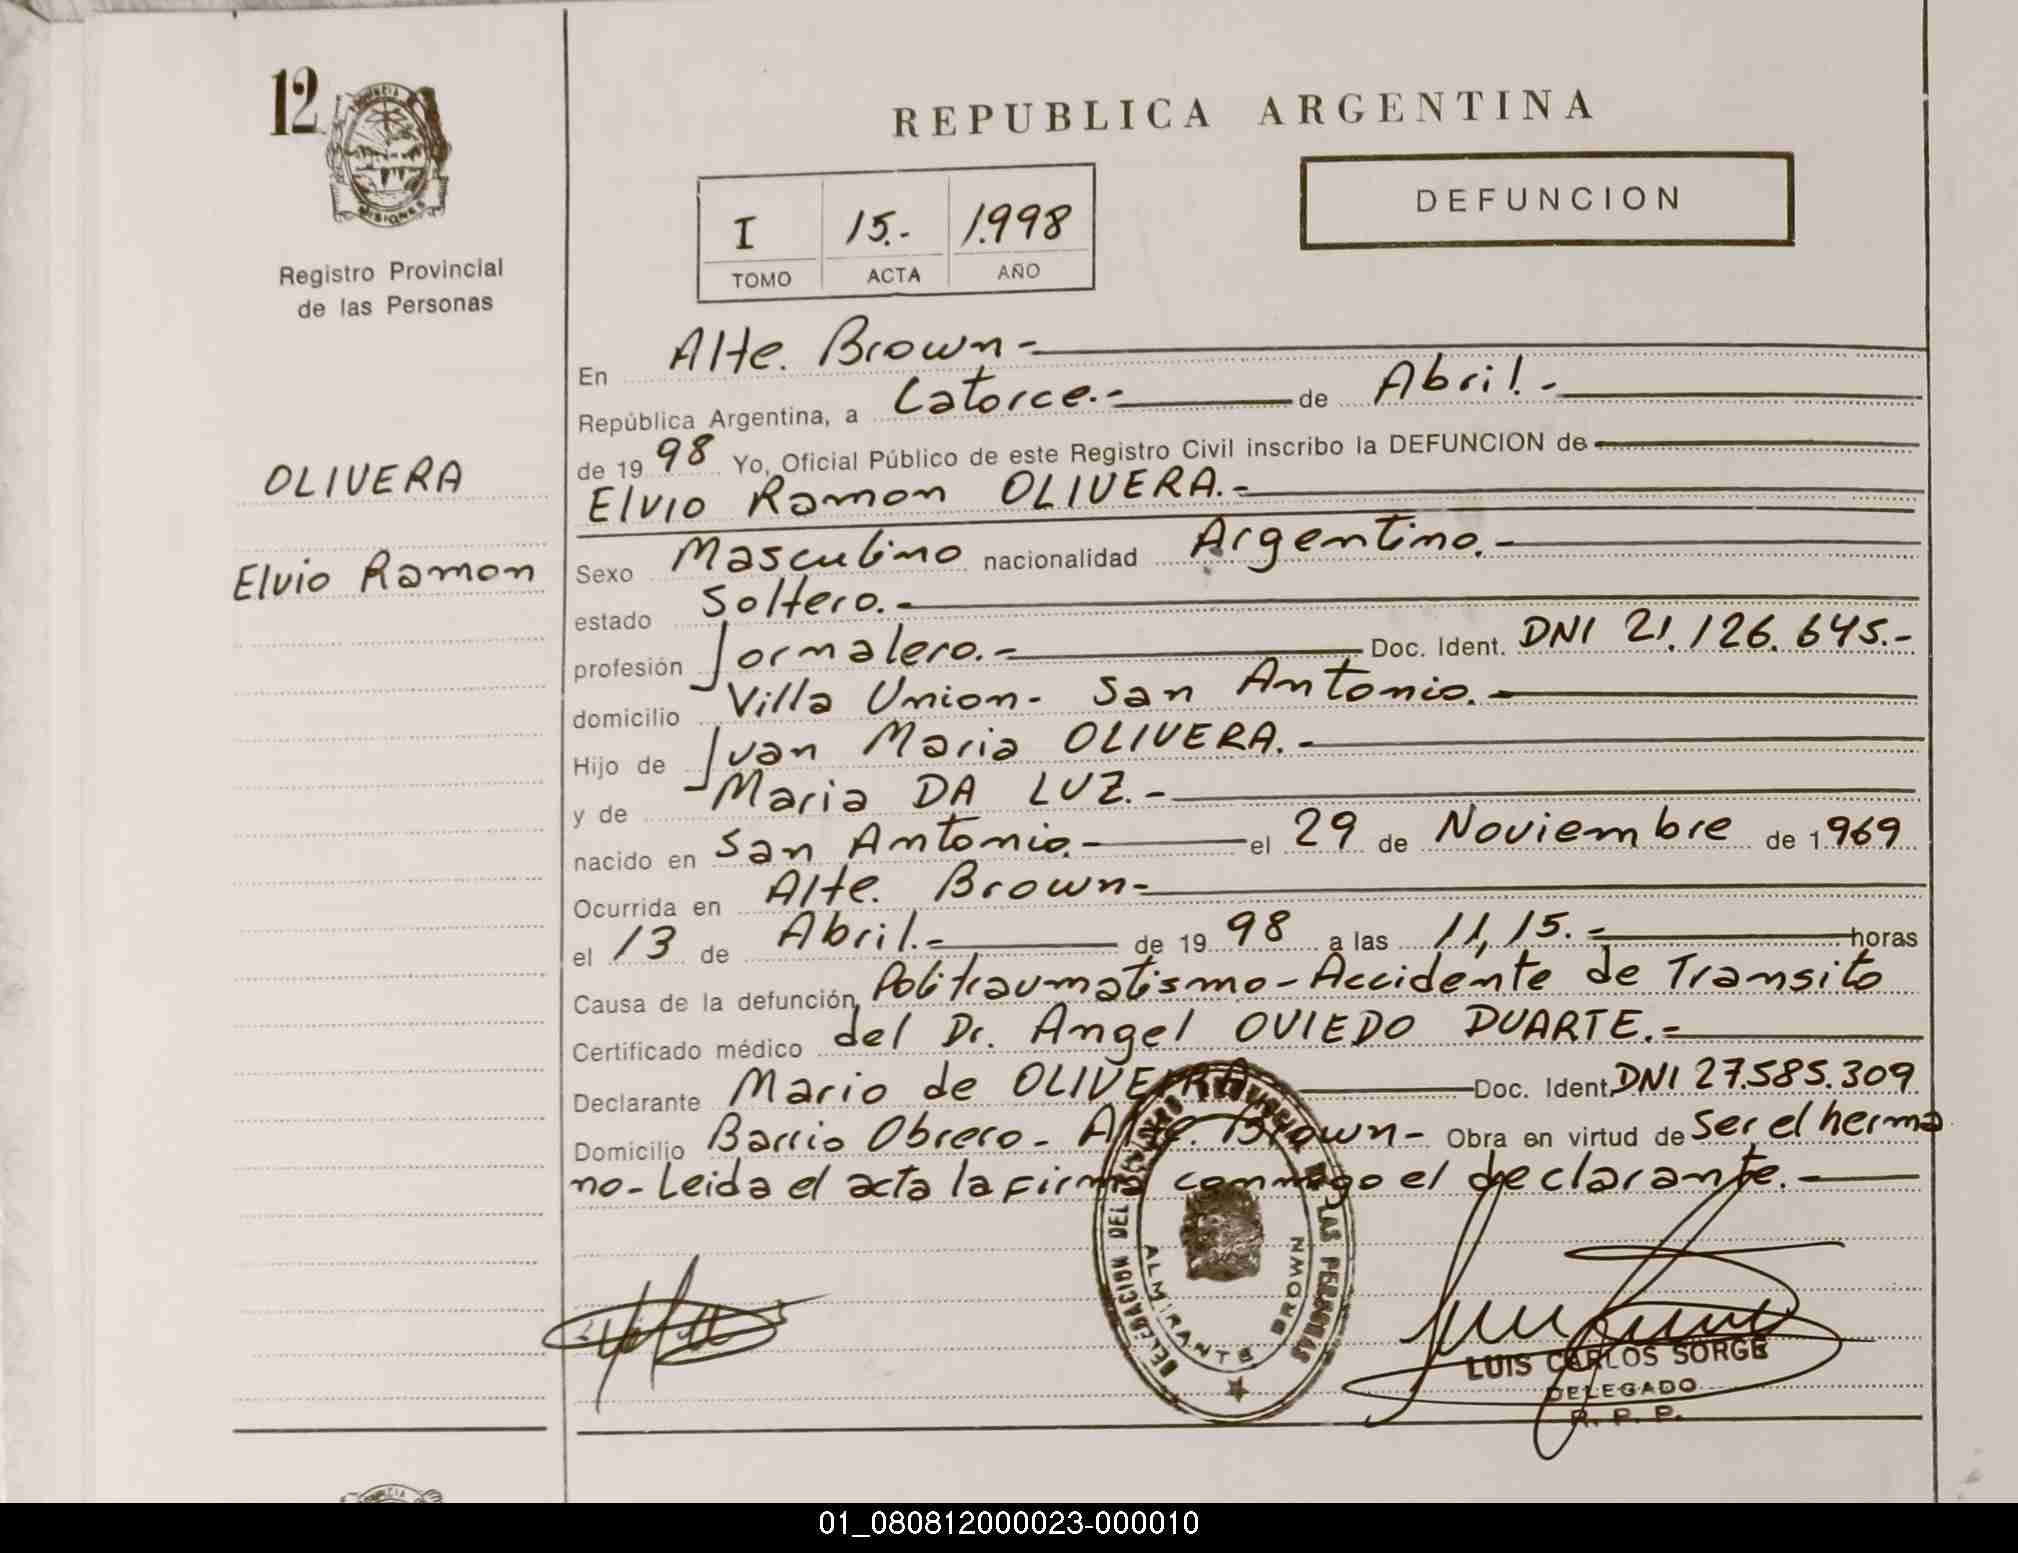 12
PROVINCIA DE
MISIONES
Registro Provincial
de las Personas
OLIVERA
Elvio Ramon
REPUBLICA ARGENTINA
I 15.- 1.998
TOMO ACTA AÑO
DEFUNCION
En Alte. Brown-
República Argentina, a Catorce.- de Abril.-
de 19 98 Yo, Oficial Público de este Registro Civil inscribo la DEFUNCION de
Elvio Ramon OLIVERA.-
Sexo Masculino nacionalidad Argentino.-
estado Soltero.-
profesión Jornalero.- Doc. Ident. DNI 21.126.645.-
domicilio Villa Union- San Antonio.-
Hijo de Juan Maria OLIVERA.-
y de Maria DA LUZ.-
nacido en San Antonio.- el 29 de Noviembre de 1969
Ocurrida en Alte. Brown-
el 13 de Abril.- de 19 98 a las 11,15.- horas
Causa de la defunción Politraumatismo-Accidente de Transito
Certificado médico del Dr. Angel OVIEDO DUARTE.-
Declarante Mario de OLIVEIRA Doc. Ident. DNI 27.585.309
Domicilio Barrio Obrero- Alte. Brown- Obra en virtud de ser el herma
no-Leida el acta la firma conmigo el declarante.-
DELEGACION DEL REGISTRO PROVINCIAL DE LAS PERSONAS
ALMIRANTE BROWN
LUIS CARLOS SORGE
DELEGADO
R. P. P.
01_080812000023-000010